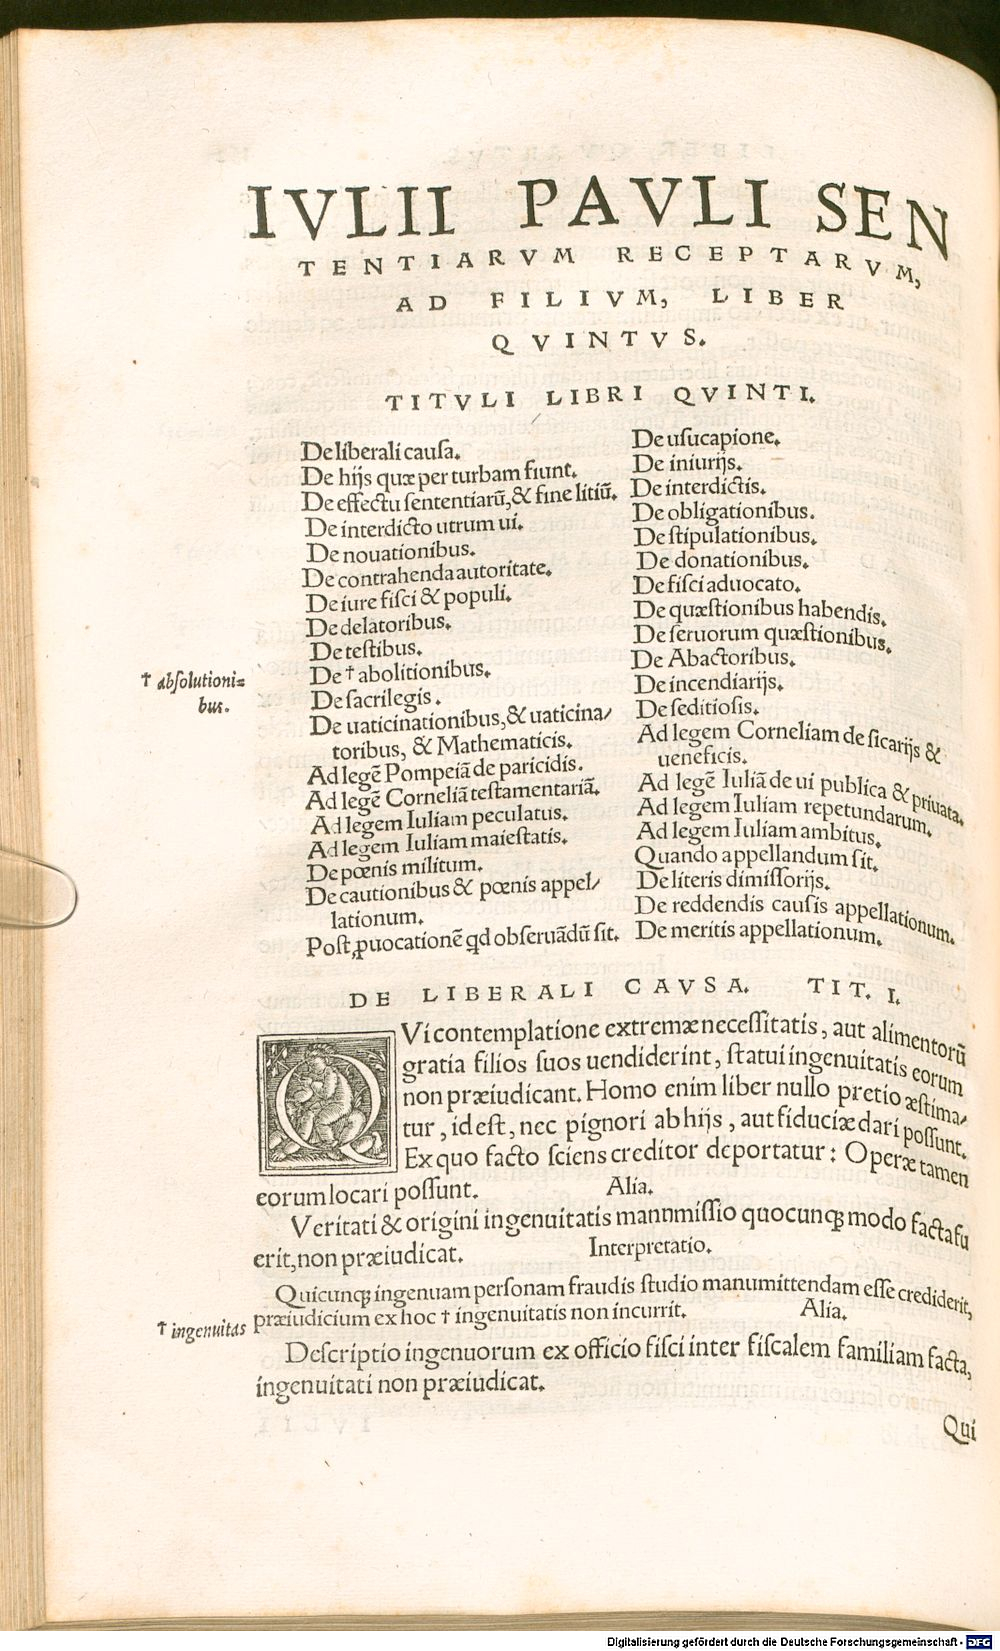 IVLII PAVLI SEN
TENTIARVM RECEPTARVM,
AD FILIVM, LIBER
QVINTVS.
TITVLI LIBRI QVINTI.
De liberali causa.
De hijs quæ per turbam fiunt.
De effectu sententiarũ, & fine litiũ.
De interdicto utrum ui.
De nouationibus.
De contrahenda autoritate.
De iure fisci & populi.
De delatoribus.
De testibus.
De † abolitionibus.
† absolutioni=
bus.
De sacrilegis.
De uaticinationibus, & uaticina/
toribus, & Mathematicis.
Ad legẽ Pompeiã de paricidis.
Ad legẽ Corneliã testamentariã.
Ad legem Iuliam peculatus.
Ad legem Iuliam maiestatis.
De pœnis militum.
De cautionibus & pœnis appel/
lationum.
Post ꝓuocationẽ qd obseruãdũ sit.
De usucapione.
De iniurijs.
De interdictis.
De obligationibus.
De stipulationibus.
De donationibus.
De fisci aduocato.
De quæstionibus habendis.
De seruorum quæstionibus.
De Abactoribus.
De incendiarijs.
De seditiosis.
Ad legem Corneliam de sicarijs &
ueneficis.
Ad legẽ Iuliã de ui publica & priuata.
Ad legem Iuliam repetundarum.
Ad legem Iuliam ambitus.
Quando appellandum sit.
De literis dimissorijs.
De reddendis causis appellationum.
De meritis appellationum.
DE LIBERALI CAVSA. TIT. I.
QVi contemplatione extremæ necessitatis, aut alimentorũ
gratia filios suos uendiderint, statui ingenuitatis eorum
non præiudicant. Homo enim liber nullo pretio æstima/
tur, id est, nec pignori ab hijs, aut fiduciæ dari possunt.
Ex quo facto sciens creditor deportatur: Operæ tamen
eorum locari possunt. Alia.
Veritati & origini ingenuitatis mannmissio quocunqꝫ modo facta fu
erit, non præiudicat. Interpretatio.
Quicunqꝫ ingenuam personam fraudis studio manumittendam esse crediderit,
præiudicium ex hoc † ingenuitatis non incurrit. Alia.
† ingenuitas
Descriptio ingenuorum ex officio fisci inter fiscalem familiam facta,
ingenuitati non præiudicat.
Qui
Digitalisierung gefördert durch die Deutsche Forschungsgemeinschaft - DFG